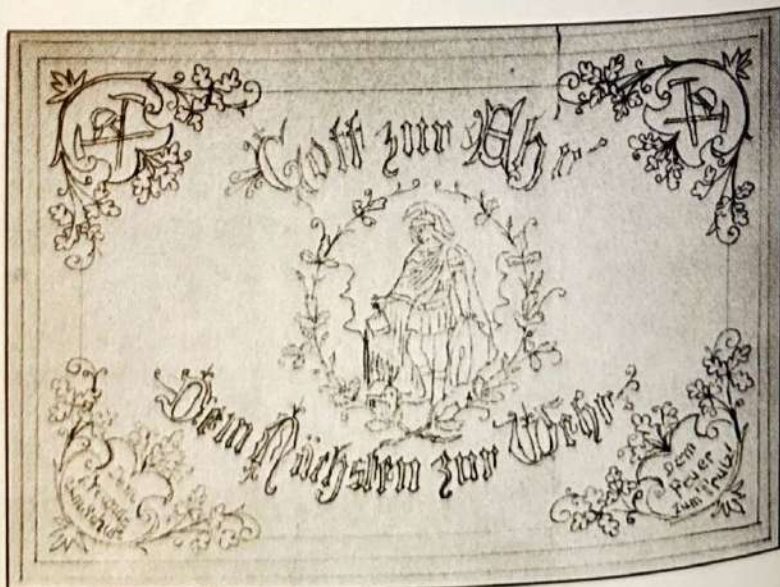 Gott zur Ehr
Dem Nächsten zur Wehr
Dem
zum Schutz
Dem
Feuer
zum Trutz